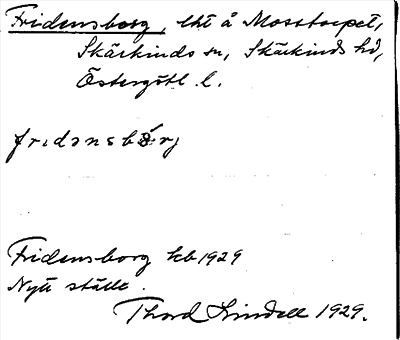 Fridensborg, lht å Mosstorpet,
Skärkinds sn, Skärkinds hd,
Östergötl. l.
fridənsbórj
Fridensborg kb 1929
Nytt ställe.
Thord Lindell 1929.